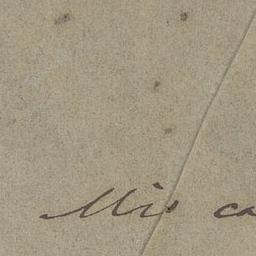 Mis ca